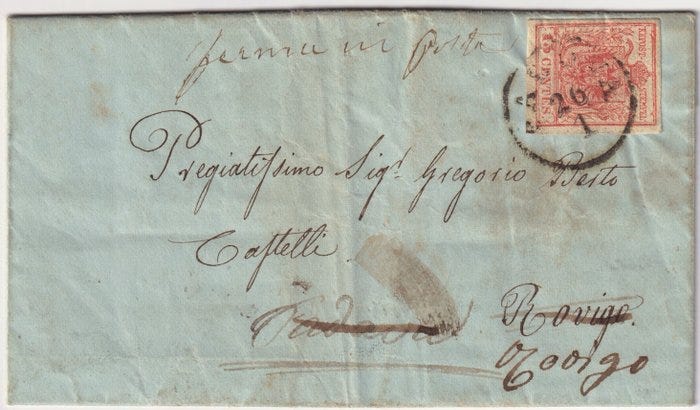 ferma in Posta
Pregiatissimo Sig.r Gregorio Berto
Castelli
Padova
Rovigo.
Rovigo
15 CENTES
26
1